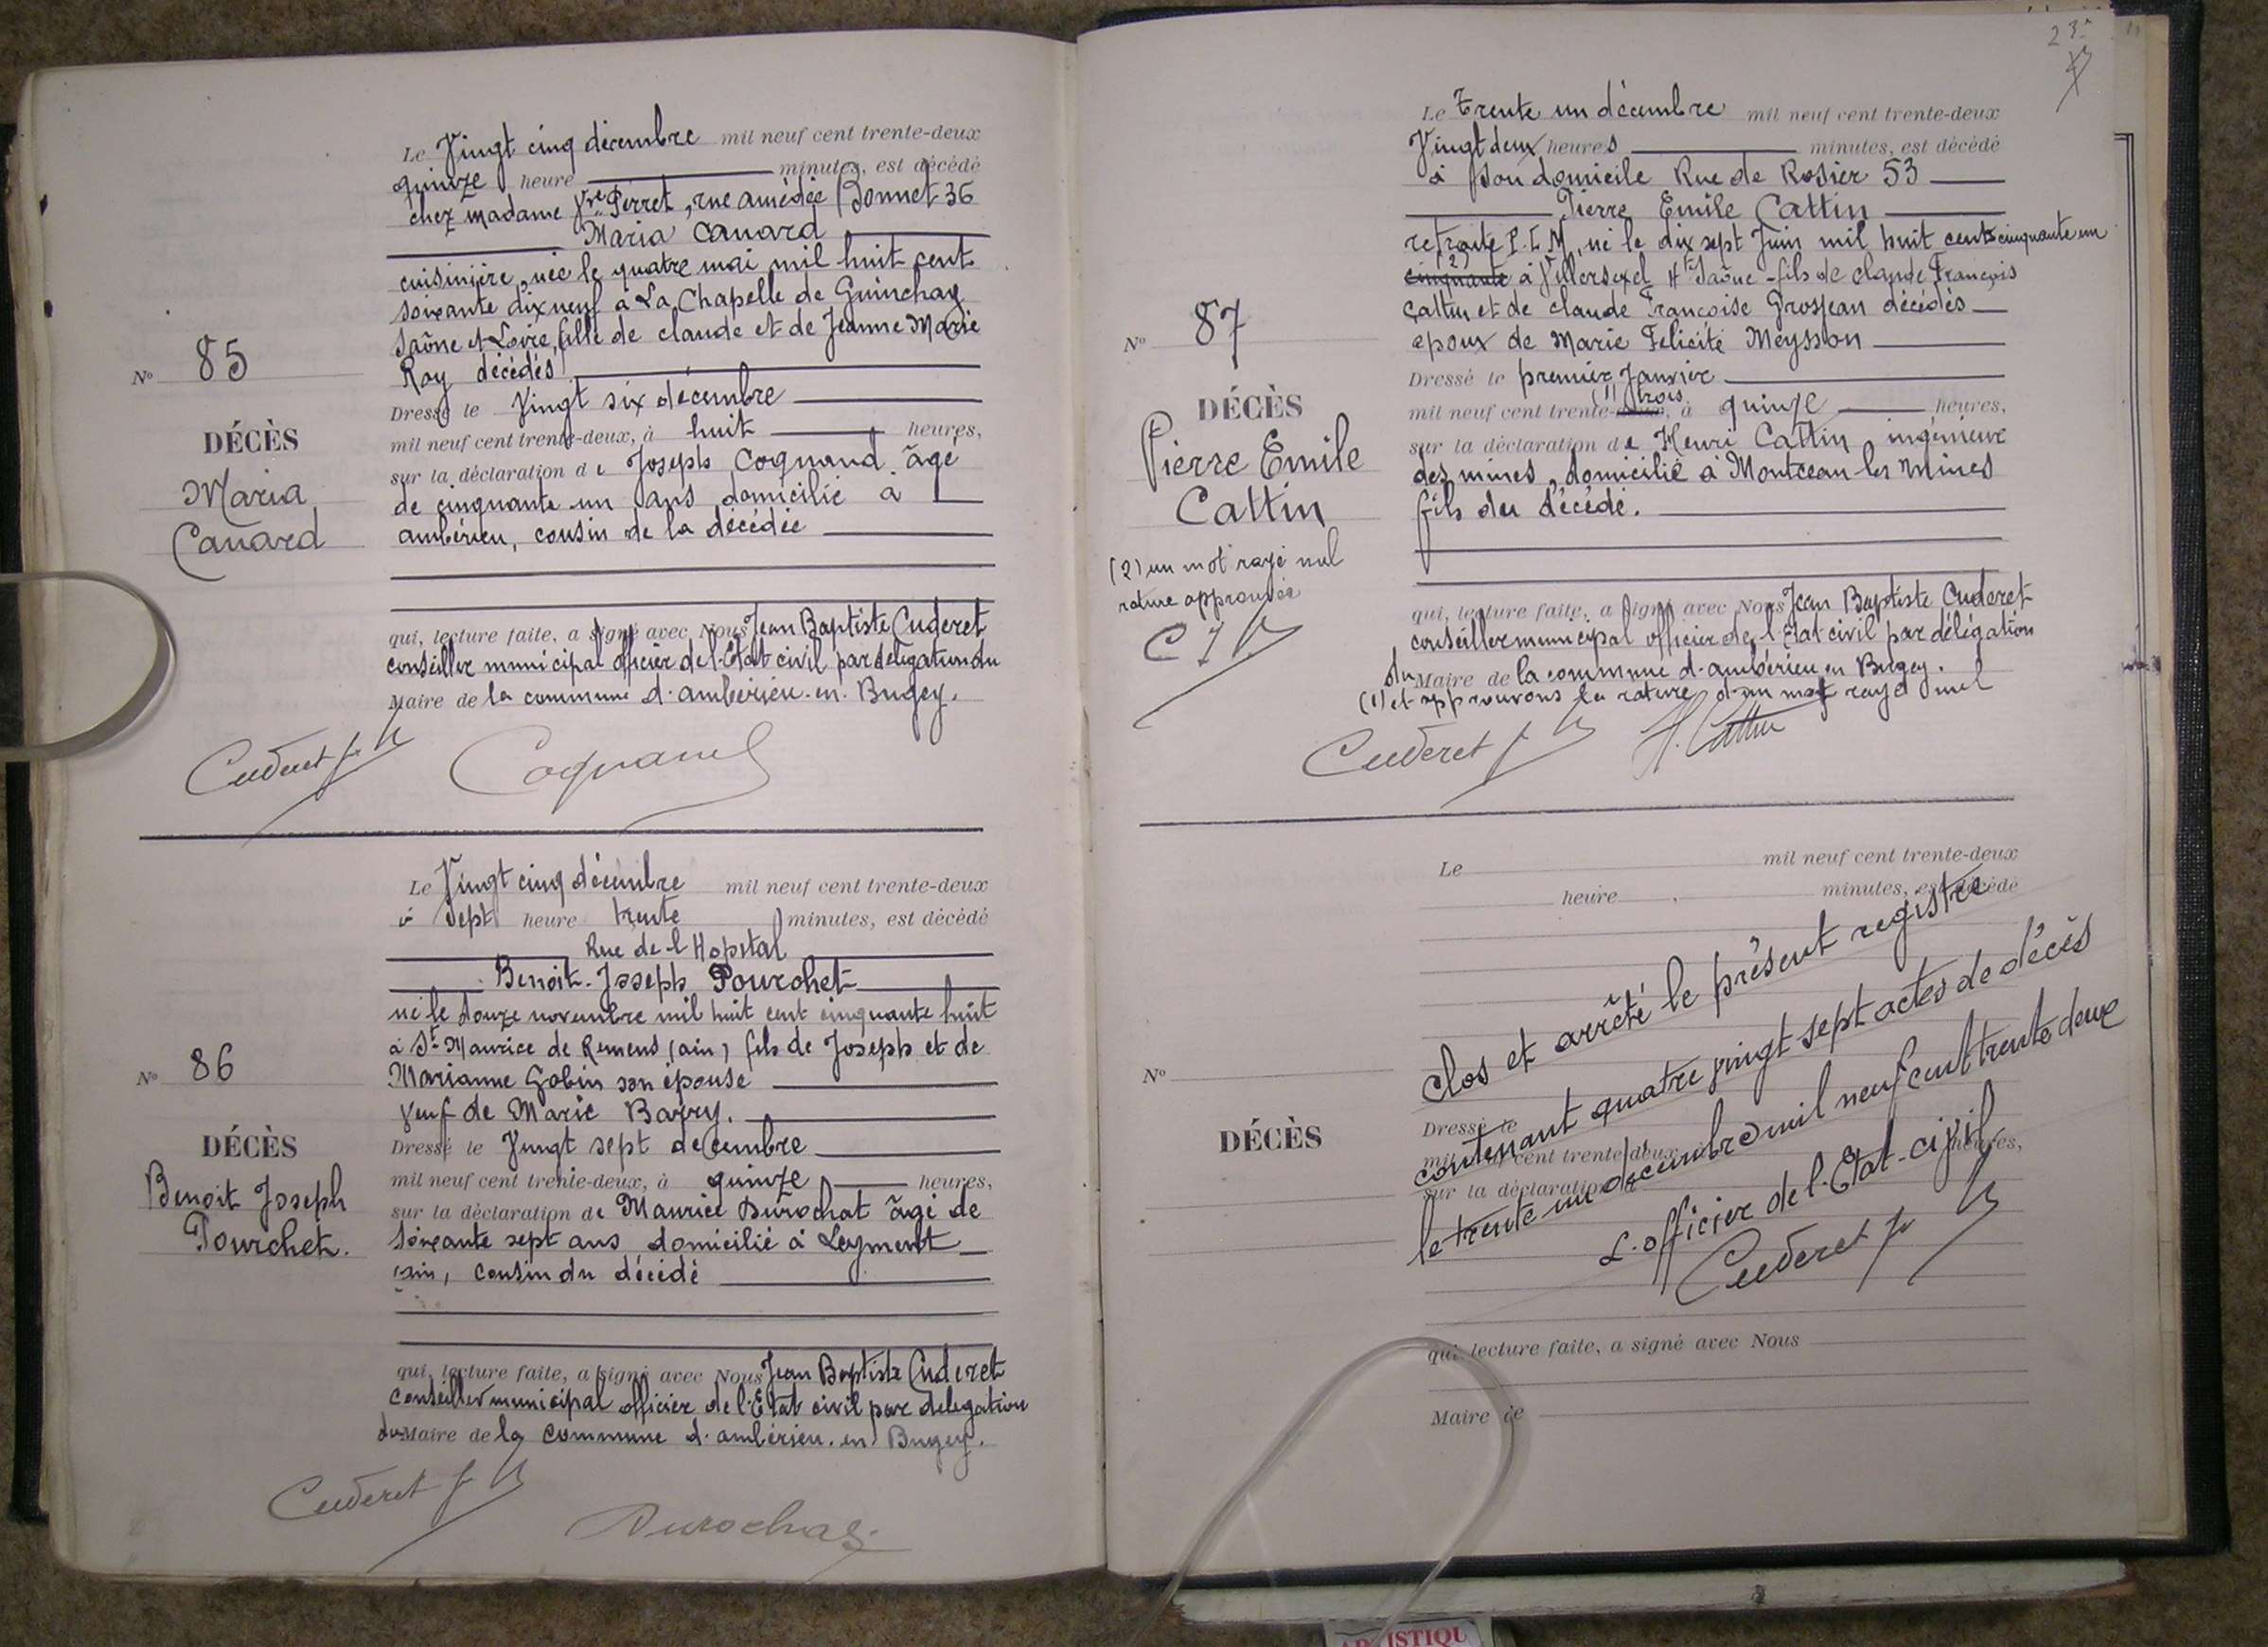 Le Vingt cinq décembre mil neuf cent trente-deux
quinze heure minutes, est décédé
chez madame Vve Perret, rue amédée Bonnet 36
Maria Canard
cuisinière, née le quatre mai mil huit cent
soixante dix neuf à La Chapelle de Guinchay
Saône et Loire, fille de claude et de Jeanne Marie
Roy décédés
Dressé le Vingt six décembre
mil neuf cent trente-deux, à huit heures,
sur la déclaration de Joseph Cognand âgé
de cinquante un ans domicilié à
ambérieu, cousin de la décédée
qui, lecture faite, a signé avec Nous Jean Baptiste Cuderet
conseiller municipal officier de l'Etat civil par délégation du
Maire de la commune d'ambérieu-en-Bugey.
N° 85
DÉCÈS
Maria
Canard
Cuderet J B Cognand
Le Vingt cinq décembre mil neuf cent trente-deux
à sept heure trente minutes, est décédé
Rue de l'Hopital
Benoit-Joseph Pourchet
né le douze novembre mil huit cent cinquante huit
à St Maurice de Remens (ain) fils de Joseph et de
Marianne Gobin son épouse
veuf de Marie Barry.
Dressé le Vingt sept decembre
mil neuf cent trente-deux, à quinze heures,
sur la déclaration de Maurice Durochat âgé de
soixante sept ans domicilié à Leyment
ain, cousin du décédé
qui, lecture faite, a signé avec Nous Jean Baptiste Cuderet
Conseiller municipal officier de l'Etat civil par delegation
du Maire de la commune d'ambérieu-en-Bugey.
N° 86
DÉCÈS
Benoit Joseph
Pourchet.
Cuderet J B
Durochat
23
Le Trente un décembre mil neuf cent trente-deux
Vingt deux heures minutes, est décédé
à son domicile Rue de Rosier 53
Pierre Emile Cattin
retraité P.L.M, né le dix sept Juin mil huit cent cinquante un
cinquante (2) à Villersexel Hte Saône - fils de claude François
Cattin et de claude Françoise Grosjean décédés
epoux de Marie Felicité Meysson
Dressé le premier Janvier
(1) trois
mil neuf cent trente-deux, à quinze heures,
sur la déclaration de Henri Cattin, ingénieur
des mines, domicilié à Montceau les mines
fils du décédé.
qui, lecture faite, a signé avec Nous Jean Baptiste Cuderet
conseiller municipal officier de l'Etat civil par délégation
du Maire de la commune d'ambérieu en Bugey.
(1) et approuvons la rature d'un mot rayé nul
N° 87
DÉCÈS
Pierre Emile
Cattin
(2) un mot rayé nul
rature approuvée
C J B
Cuderet J B H. Cattin
Le mil neuf cent trente-deux
heure minutes, est décédé
N°
DÉCÈS
Dressé le
mil neuf cent trente-deux heures,
sur la déclaration de
clos et arrêté le présent registre
contenant quatre vingt sept actes de décès
le trente un décembre mil neuf cent trente deux
L'officier de l'Etat-civil
Cuderet J B
qui, lecture faite, a signé avec Nous
Maire de